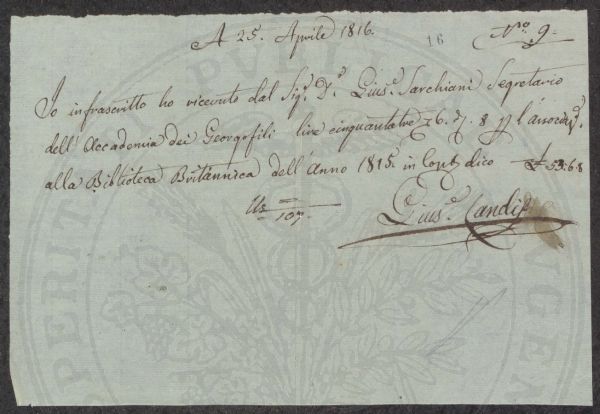 A 25. Aprile 1816.
16
N.º 9.
Io infrascritto ho ricevuto dal Sig.r D.r Gius.e Sarchiani Segretario
dell'Accademia dei Georgofili lire cinquantatre 6. 8 p l'associaz.e
alla Biblioteca Britannica dell'Anno 1815. in Cont.i dico £ 53.6.8
107.
Gius.e Landi